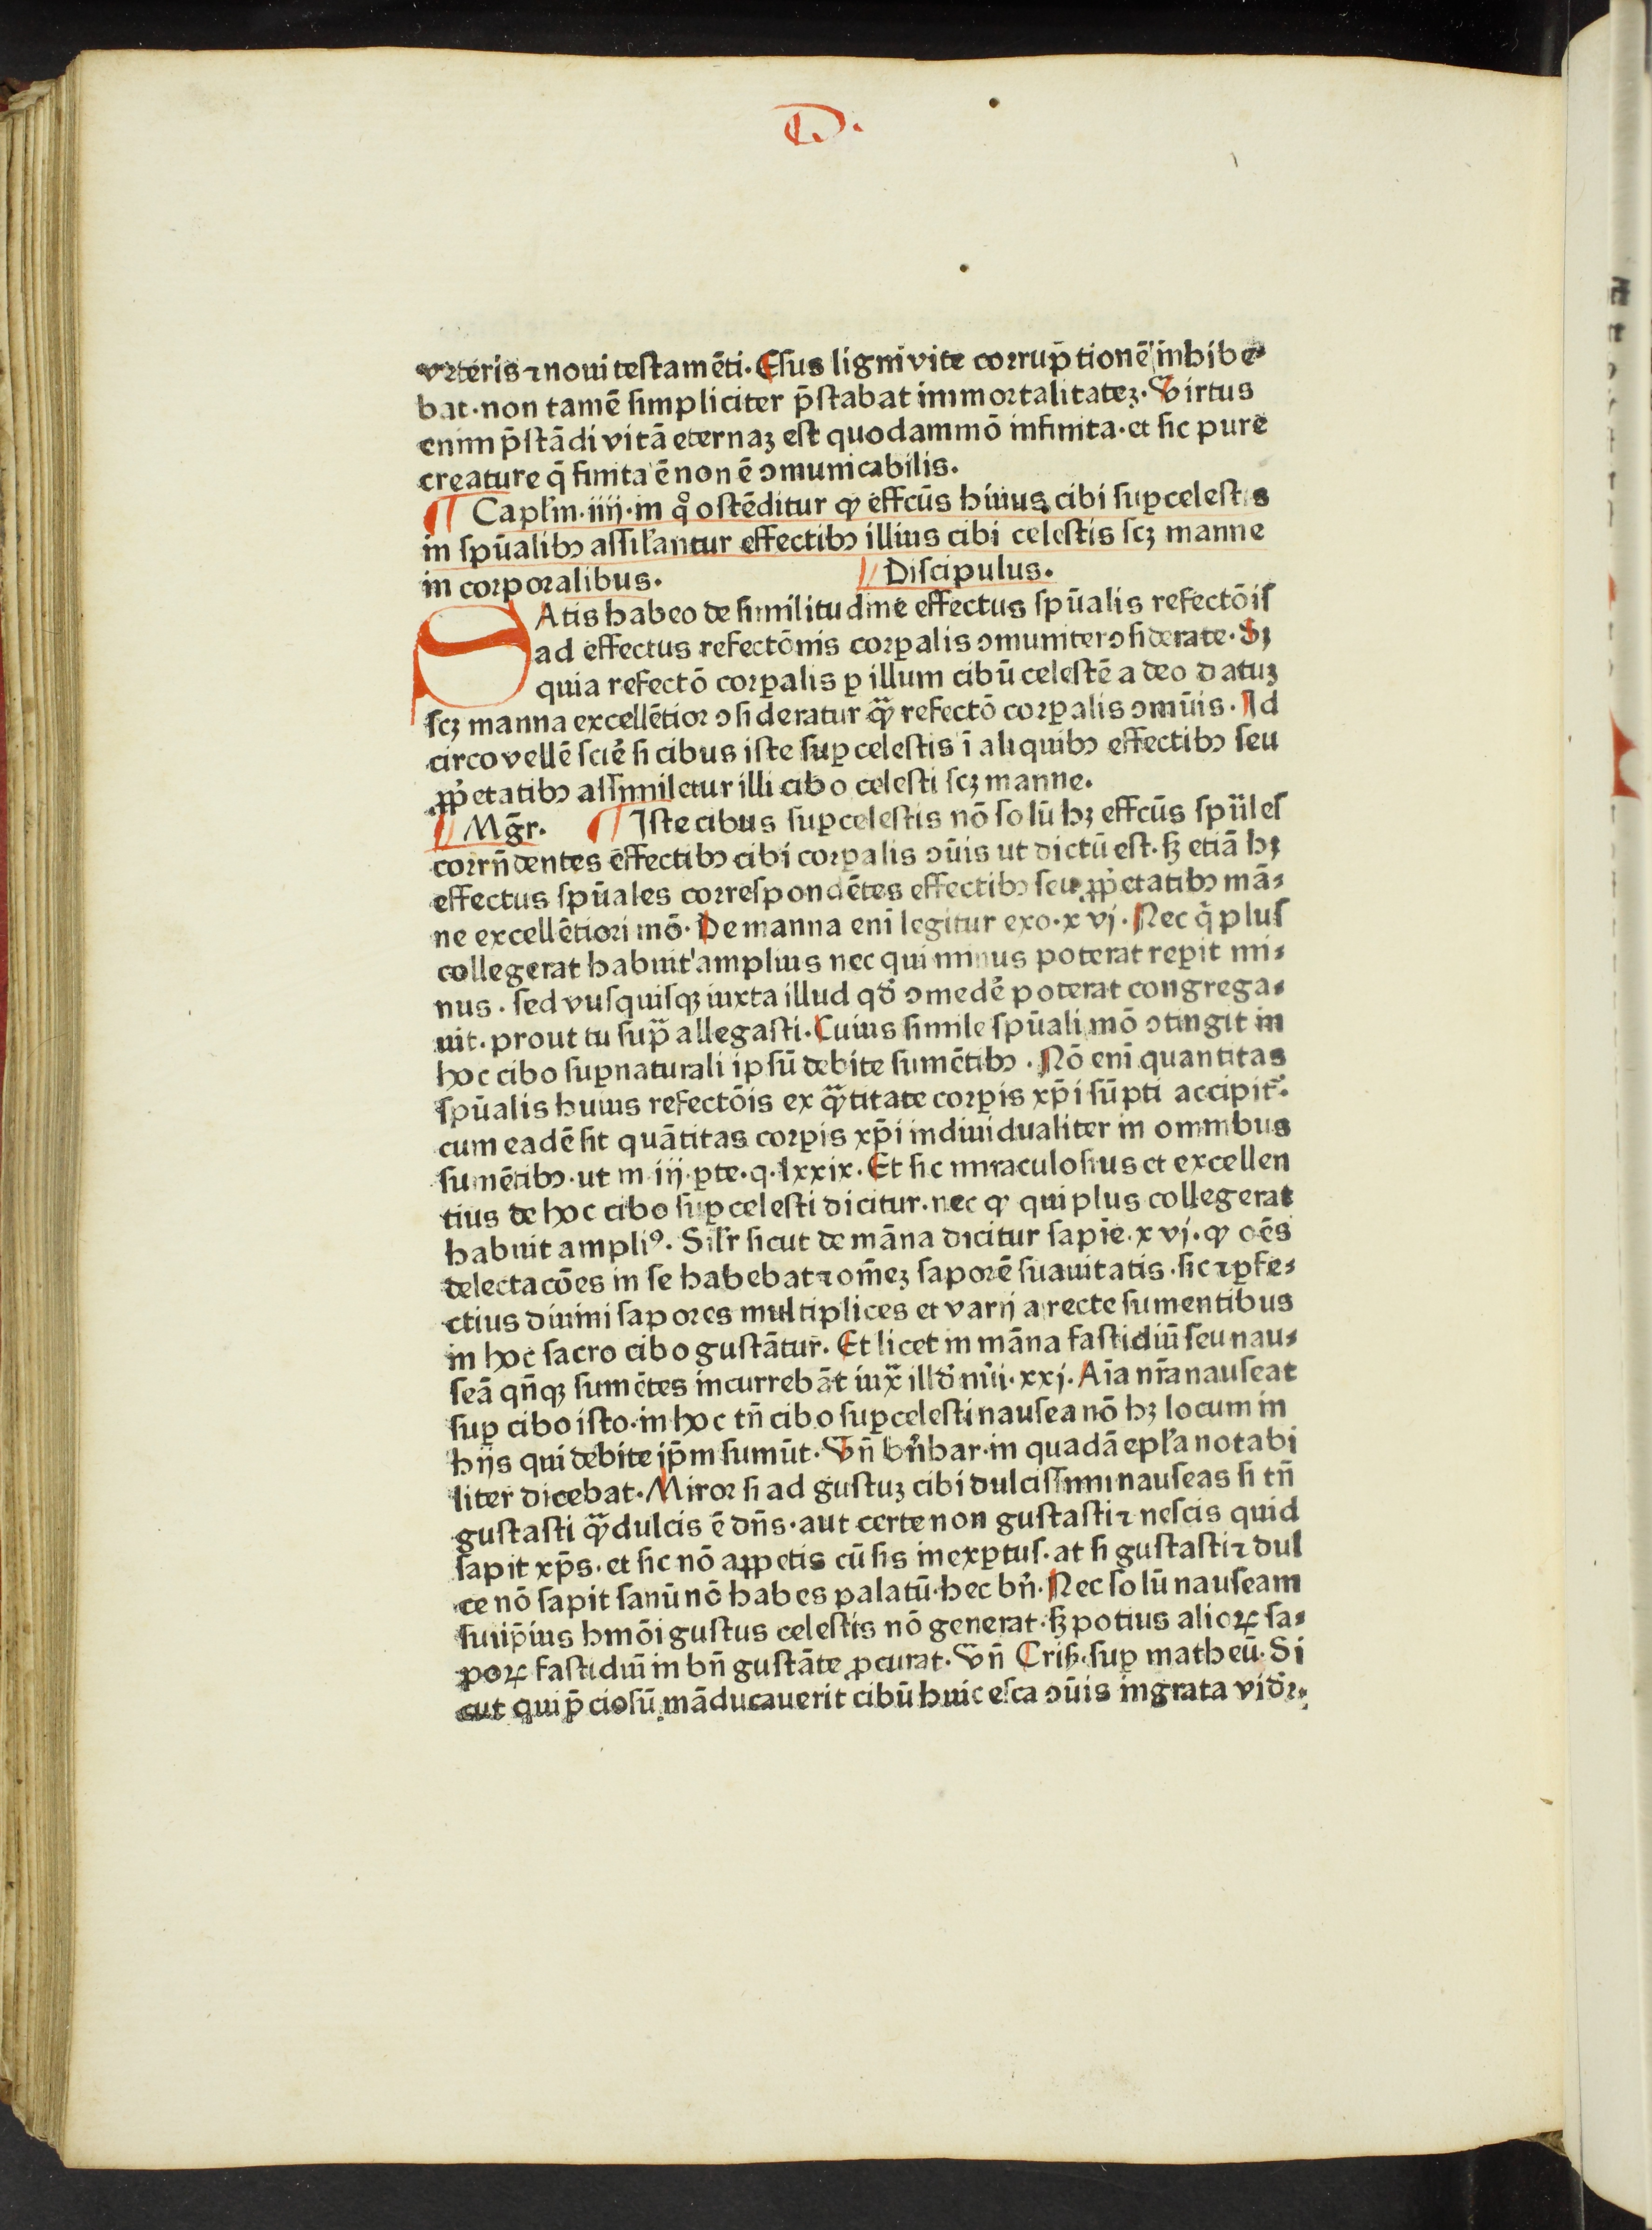 D.
veteris ⁊ noui testamēti. Esus ligni vite corrup̄tionē inhibe⸗
bat. non tamē simpliciter p̄stabat immortalitateꝫ. Virtus
enim p̄stādi vitā eternaꝫ est quodammō infinita. et sic pure
creature q̄ finita ē non ē ↄmunicabilis.
¶ Capl'm. iiij. in qͦ ostēditur ꝙ effcūs huius cibi suꝑcelestis
in spūalibꝫ assil'antur effectibꝫ illius cibi celestis scꝫ manne
in corporalibus. Discipulus.
SAtis habeo de similitudine effectus spūalis refectōis
ad effectus refectōnis corꝑalis ↄmuniter ↄsiderate. Sꝫ
quia refectō corꝑalis ꝑ illum cibū celestē a deo datuꝫ
scꝫ manna excellētior ↄsideratur qᷓ refectō corꝑalis ↄmūis. Id
circo vellē scire̓ si cibus iste suꝑcelestis ī aliquibꝫ effectibꝫ seu
ꝓp̓etatibꝫ assimiletur illi cibo celesti scꝫ manne.
Mḡr. ¶ Iste cibus suꝑcelestis nō solū hꝫ effcūs spūles
corrn̄dentes effectibꝫ cibi corꝑalis ↄūis ut dictū est. sꝫ etiā hꝫ
effectus spūales correspondētes effectibꝫ seu ꝓp̓etatibꝫ mā⸗
ne excellētiori mō. De manna enī legitur exo. xvj. Nec q̄ plus
collegerat habuit amplius nec qui minus poterat reꝑit mi⸗
nus. sed vusquisqꝫ iuxta illud qd̓ ↄmede̓ poterat congrega⸗
uit. prout tu supᷓ allegasti. Cuius simile spūali mō ↄtingit in
hoc cibo suꝑnaturali ipsū debite sumētibꝫ. Nō enī quantitas
spūalis huius refectōis ex qᷓtitate corꝑis xp̄i sūpti accipit᷑.
cum eadē sit quātitas corꝑis xp̄i indiuidualiter in omnibus
sumētibꝫ. ut in iij. ꝑte. q. lxxix. Et sic miraculosius et excellen
tius de hoc cibo suꝑcelesti dicitur. nec ꝙ qui plus collegerat
habuit ampliꝰ. Sil'r sicut de māna dicitur sapie. xvj. ꝙ oēs
delectacōes in se habebat ⁊ om̄eꝫ saporē suauitatis. sic ⁊ ꝑfe⸗
ctius diuini sapores multiplices et varij a recte sumentibus
in hoc sacro cibo gustātur. Et licet in māna fastidiū seu nau⸗
seā qn̄qꝫ sumētes incurrebāt iuxᷓ illd̓ nūi. xxj. Aīa nr̄a nauseat
suꝑ cibo isto. in hoc tn̄ cibo suꝑcelesti nausea nō hꝫ locum in
hijs qui debite ip̄m sumūt. Vn̄ bn̓bar. in quadā epl'a notabi
liter dicebat. Miror si ad gustuꝫ cibi dulcissimi nauseas si tn̄
gustasti qᷓ dulcis ē dn̄s. aut certe non gustasti ⁊ nescis quid
sapit xp̄s. et sic nō appetis cū sis inexꝑtus. at si gustasti ⁊ dul
ce nō sapit sanū nō habes palatū. hec bn̓. Nec solū nauseam
sui ip̄ius hmōi gustus celestis nō generat. sꝫ potius alioꝝ sa⸗
poꝝ fastidiū in bn̄ gustāte ꝓcurat. Vn̄ Cris. suꝑ matheū. Si
cut qui p̄ciosū māducauerit cibū huic esca ↄūis ingrata vid̓r.